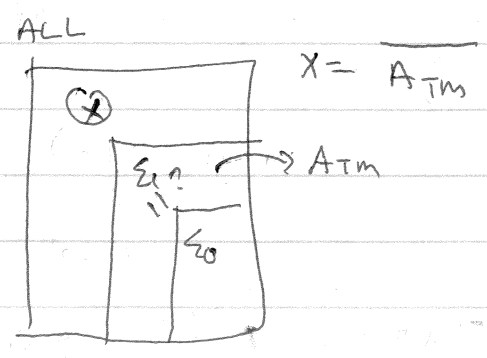 ALL
X = \overline{A_{TM}}
X
Σ₁ ? → A_{TM}
Σ₀